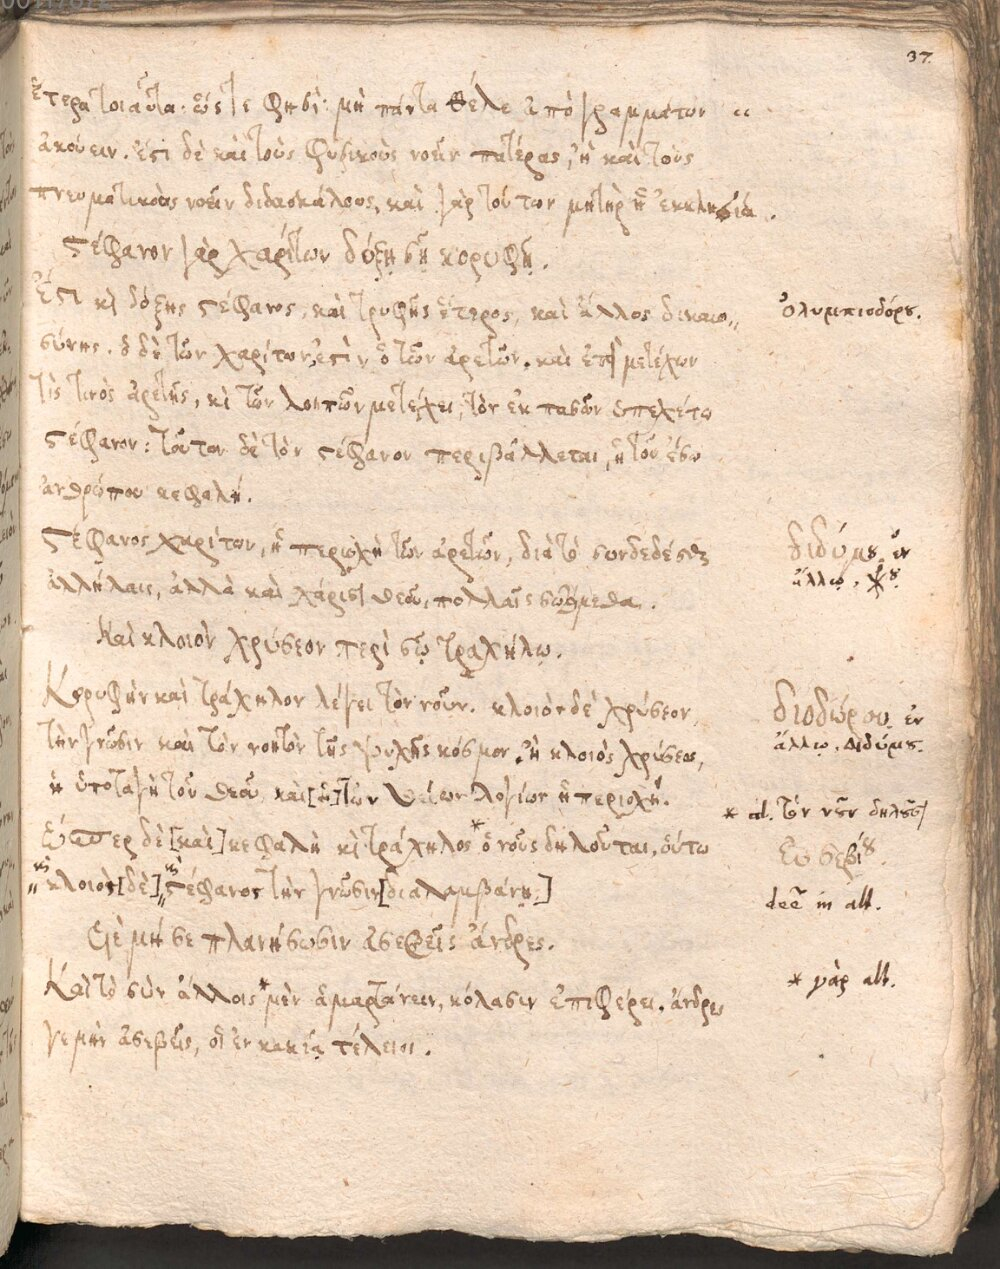 37
ἕτερα τοιαῦτα· ὥς τε φησὶ· μὴ πάντα θέλε ἀπὸ γραμμάτων
ἀκούειν. ἔστι δὲ καὶ τοὺς φυσικοὺς νοεῖν πατέρας, ἢ καὶ τοὺς
πνευματικοὺς νοεῖν διδασκάλους, καὶ γὰρ τούτων μήτηρ ἡ ἐκκλησία.
στέφανον γὰρ χαρίτων δέξῃ σῇ κορυφῇ.
Ἔστι κὶ δόξης στέφανος, καὶ τρυφῆς ἕτερος, καὶ ἄλλος δικαιο„
Ὀλυμπιοδώρου.
σύνης. ὁ δὲ τῶν χαρίτων, ἐστὶν ὁ τῶν ἀρετῶν. καὶ μετέχων
τίς τινὸς ἀρετῆς, κὶ τῶν λοιπῶν μετέχει, τὸν ἐκ πασῶν
στέφανον· τοῦτον δὲ τὸν στέφανον περιβάλλεται, ἡ τοῦ ἔσω
ἀνθρώπου κεφαλή.
στέφανος χαρίτων, ἡ περιοχὴ τῶν ἀρετῶν, διὰ τὸ συνδεδέσθαι
διδύμου ἐν
ἄλλῳ,
ἀλλήλαις, ἀλλὰ καὶ χάρισι θεοῦ, πολλαῖς σωζόμεθα.
Καὶ κλοιὸν χρύσεον περὶ σῷ τραχήλῳ.
Κορυφὴν καὶ τράχηλον λέγει τὸν νοῦν. κλοιὸν δὲ χρύσεον,
διοδώρου ἐν
ἄλλῳ, Διδύμου.
τὴν γνῶσιν καὶ τὸν νοητὸν τῆς ψυχῆς κόσμον. ἢ κλοιὸς χρύσεος,
ἡ ὑποταγὴ τοῦ θεοῦ, καὶ [ἡ] τῶν θείων λογίων ἡ περιοχή.
* al. τὸν νοῦν δηλοῦσι
Εὐσεβίου
ὥσπερ δὲ [καὶ] κεφαλὴ κὶ τράχηλος * ὁ νοῦς δηλοῦται, οὕτω
κὶ κλοιὸς [δὲ] κὶ στέφανος τὴν γνῶσιν [διαλαμβάνῃ.]
deē in alt.
Υἱὲ μή σε πλανήσωσιν ἀσεβεῖς ἄνδρες.
Καὶ τὸ σὺν ἄλλοις * μὲν ἁμαρτάνειν, κόλασιν ἐπιφέρει. ἄνδρες
* γὰρ alt.
γε μὴν ἀσεβεῖς, οἱ ἐν κακίᾳ τέλειοι.